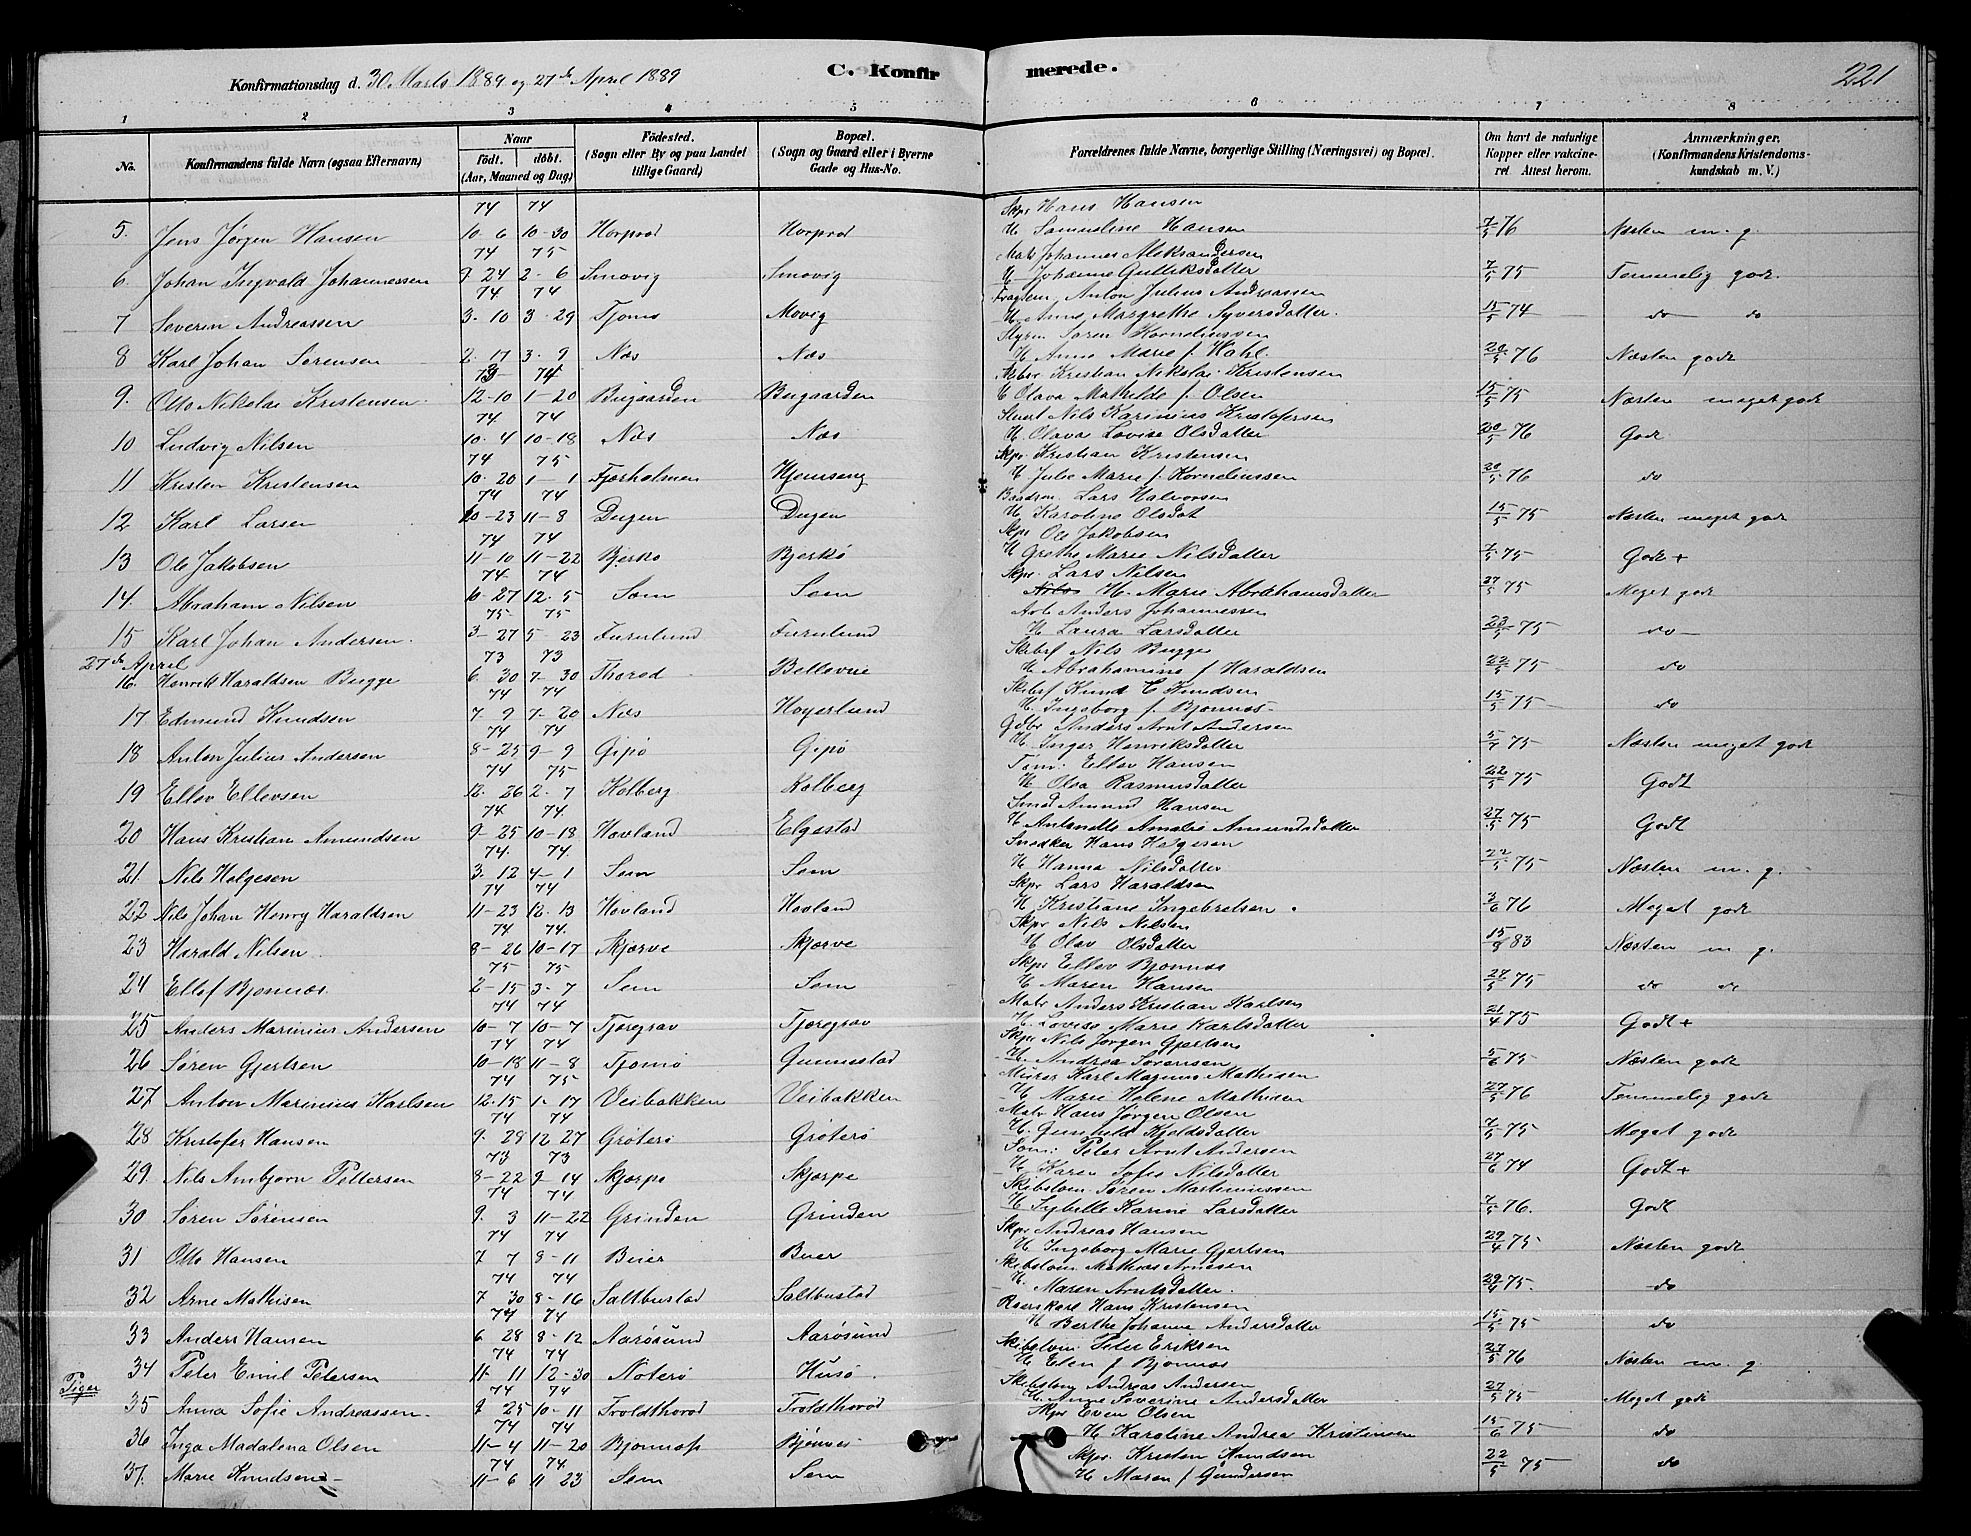 C. Konfirmerede.
221
Konfirmationsdag d. 30 Marts 1889 og 27de April 1889
1 2 3 4 5 6 7 8
No. Konfirmandens fulde Navn (ogsaa Efternavn) Naar født. døbt. (Aar, Maaned og Dag) Fødested. (Sogn eller By og paa Landet tillige Gaard) Bopæl. (Sogn og Gaard eller i Byerne Gade og Hus-No. Forældrenes fulde Navne, borgerlige Stilling (Næringsvei) og Bopæl. Om havt de naturlige Kopper eller vakcineret Attest herom. Anmærkninger. (Konfirmandens Kristendomskundskab m. V.)
74 74 Skpr Hans Hansen
5. Jens Jørgen Hansen 10-6 10-30 Horprod Horprod H Samueline Hansen 7/5 76 Næsten m. g.
74 75 Matr Johannes Aleksandersen
6. Johan Ingvald Johannessen 9 24 2-6 Smovig Smovig H Johanne Gulliksdatter 7/5 75 Temmelig godt.
74 74 Anton Julius Andreassen
7 Severin Andreassen 3-10 3-29 Tjømø Movig H Anne Margrethe Syversdatter. 15/5 74 do do
Styrm Søren Korneliussen
8 Karl Johan Sørensen 2-17 3-9 Næs Næs H Anna Marie f. Hahl. 20/5 76 Næsten godt
73 74 Kristian Nikolai Kristensen
9. Otto Nikolai Kristensen 12-10 1-20 Bugaarden Bugaarden H Olava Mathilde f. Olsen 15/5 75 Næsten meget godt
74 74 Nils Karinius Kristofersen
10 Ludvig Nilsen 10-4 10-18 Næs Næs H. Olava Lovise Olsdatter 20/5 76 Godt
74 75 Skpr Kristian Kristensen
11 Kristen Kristensen 10-20 1-1 Fjærholmen Hjemseng H Julie Marie f. Korneliussen 20/5 76 do
74 74 Lars Halvorsen
12 Karl Larsen 10-23 11-8 Dugen Dugen H Karoline Olsdat 15/5 75 Næsten meget godt
74 74 Skpr Ole Jakobsen
13 Ole Jakobsen 11-10 11-22 Bjerkø Bjerkø H Grethe Marie Nilsdatter 7/5 75 Godt +
74 74 Skpr. Lars Nilsen
14. Abraham Nilsen 10-27 12-5 Sem Sem H. Marie Abrahamsdatter 27/5 75 Meget godt
75 75 Arb Anders Johannessen
15 Karl Johan Andersen 3-27 5-23 Furulund Furulund H Laura Larsdatter 23/5 75 do
27de April
73 73 Skibsf Nils Bugge
16. Henrik Haraldsen Bugge 6 20 7-30 Thorød Bellevue H Abrahamine f Haraldsen 22/5 75 do
74 74 Skibsf Knud C Knudsen
17 Edmund Knudsen 7-9 7-20 Næs Høyerlund H. Ingeborg f. Bjønnes 15/5 75 do
74 74 Gdbr Anders Arnt Andersen
18 Anton Julius Andersen 8-25 9-9 Gipø Gipø H. Inger Henriksdatter 5/7 75 Næsten meget godt
74 75 Tom. Ellev Hansen
19 Ellev Ellevsen 12-26 2-7 Kolberg Kolberg H Olea Rasmusdatter 22/5 75 Godt
74 74 Smed Amund Hansen
20 Hans Kristian Amundsen 9-25 10-18 Hovland Elgestad H Antonette Amalie Amundsdatter 27/5 75 Godt
74 74 Snedker Hans Helgesen
21. Nils Helgesen 3-12 4-1 Sem Sem H Hanna Nilsdatter 22/5 75 Næsten m. g.
74 74 Skpr Lars Haraldsen
22 Nils Johan Henry Haraldsen 11-23 12-13 Hovland Hovland H Kristiane Ingebretsen 3/6 76 Meget godt
74 74 Skpr Nils Nilsen
23 Harald Nilsen 8-26 10-17 Skjærve Skjærve H Olav Olsdatter 15/9 83 Næsten m g.
75 75 Skpr Ellev Bjønnes
24 Ellef Bjønnæs 2-15 3-7 Sem Sem H Maren Hansen 27/5 75 do do
74 74 Matr Anders Kristian Karlsen
25 Anders Marinius Andersen 10-7 10-7 Tjøregrav Tjøregrav H. Lovise Marie Karlsdatter 21/4 75 Godt +
74 74 Skpr Nils Jørgen Gjertsen
26 Søren Gjertsen 10-18 11-8 Tjømø Gunnestad H. Andrea Sørensen 5/6 75 Næsten godt
74 75 Murer Karl Magnus Mathisen
27 Anton Marinius Karlsen 12-15 1-17 Veibakken Veibakken H Marie Helene Mathisen 27/5 76 Temmelig godt
74 74 Matr Hans Jørgen Olsen
28 Kristofer Hansen 9-29 12 27 Grøterø Grøterø H. Gunhild Kjeldsdatter 7/5 75 Meget godt
73 73 Som: Peter Arnt Andersen
29. Nils Ambjørn Pettersen 8-22 9-14 Skjærpe Skjærpe H Karen Sofie Nilsdatter 27/6 74 Godt +
74 74 Skibstøm Søren Martinussen
30 Søren Sørensen 9-3 11-22 Grinden Grinden H Sybille Karine Larsdatter 7/5 76. Godt
74 74 Skpr Andreas Hansen
31 Otto Hansen 7 7 8-11 Buer Buer H Ingeborg Marie Gjertsen 29/4 75 Næsten godt
74 74 Skibstøm. Mathias Arnesen
32 Arne Mathisen 7 30 8-16 Saltbustad Saltbustad H. Maren Arntsdatter. 29/4 75. do
74 74 Hans Kristensen
33 Anders Hansen 6 28 8-12 Aarøsund Aarøsund H Berthe Johanne Andersdatter 15/5 75 do
74 74 Skibstøm Peter Eriksen
34 Peter Emil Petersen 11-11 12-30 Noterø Husø H Elen f Bjønnes 27/5 76 Næsten m. g
Piger
74 74 Skibstøm Andreas Andersen
35 Anna Sofie Andreassen 9 25 10-11 Troldthorød Troldthorød H. Anne Severine Andersdatter 27/5 75 Meget godt
74 74 Skpr Even Olsen
36 Inga Madalena Olsen 11-4 11-20 Bjønnes Bjønnes H Karoline Andrea Kristensen 15/6 75 do
74 74 Skpr. Kristen Knudsen
37. Marie Knudsen 11-6 11 23 Sem Sem H Maren f Gundersen 22/5 75 do